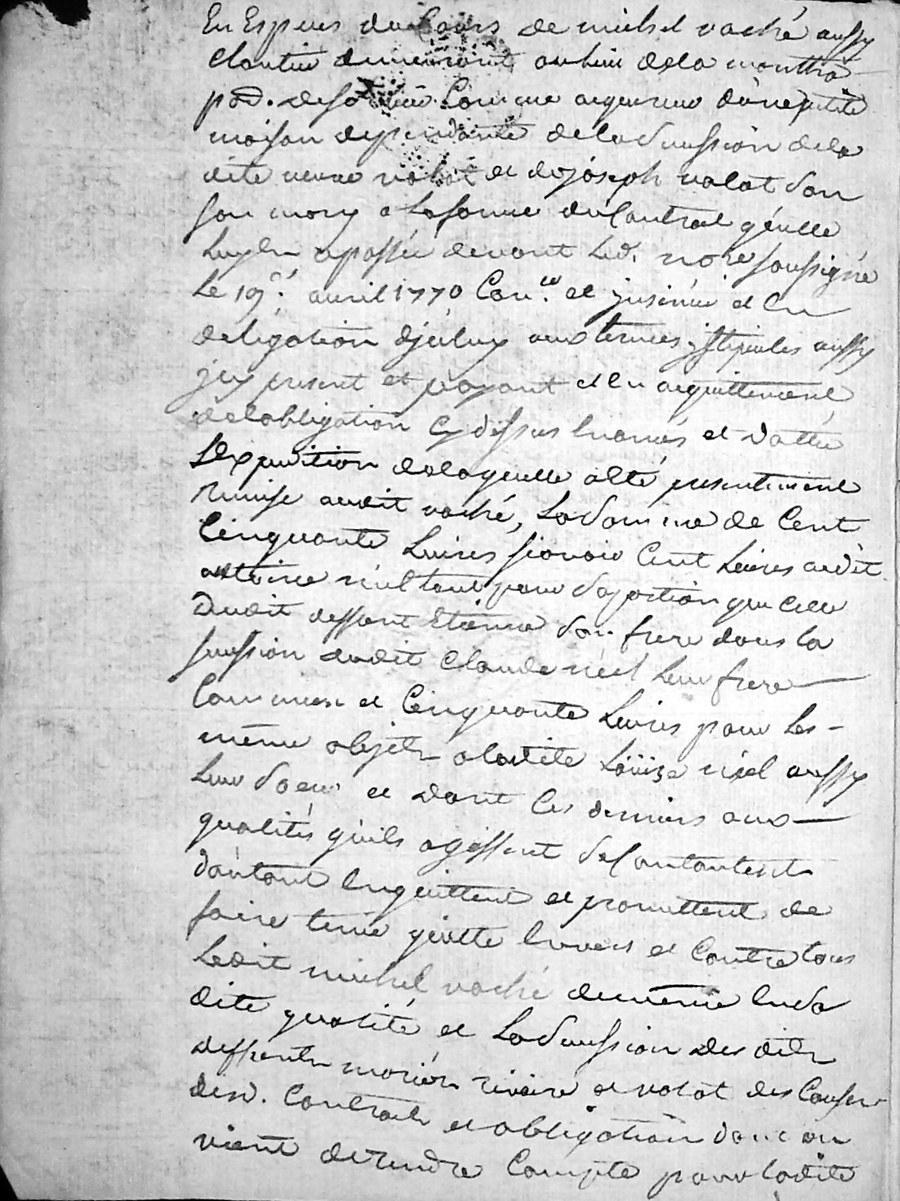 En Espèces du Cours de michel vaché aussy
Chantier demeurant au lieu de la
pad. de Comme acquereur d'une petite
maison dependante de la sucession de la
dite veuve valat et de joseph valat son
son mary a la forme du Contrat qu'elle
luy en a passée devant Led. no.re soussigné
Le 19.e avril 1770 Con.lé et jnsinué et En
deligation d'jceluy aux termes jstipulés aussy
jcy present et payant et en acquittement
de l'obligation Cy dessus Enoncés et dattée
L'Expedition de laquelle a été presentement
remise audit vaché, La somme de Cent
Cinquante Livres sçavoir Cent Livres audit
antoine pour sa portion que Celle
dudit deffunt Etienne son frere dans la
sucession dudit Claude Leur frere
Commun et Cinquante Livres pour Les
même objets a ladite Loüize aussy
Leur soeur et dont Ces derniers aux
qualités qu'ils agissent se Contantent
d'autant Enquittent et promettent de
faire tenir quitte Envers et Contre tous
Ledit michel vaché de même En sa
dite qualité et La sucession des dits
deffunts rivoire et valat des Causes
desd. Contrats et obligation dont on
vient de rendre Compte pour ladite